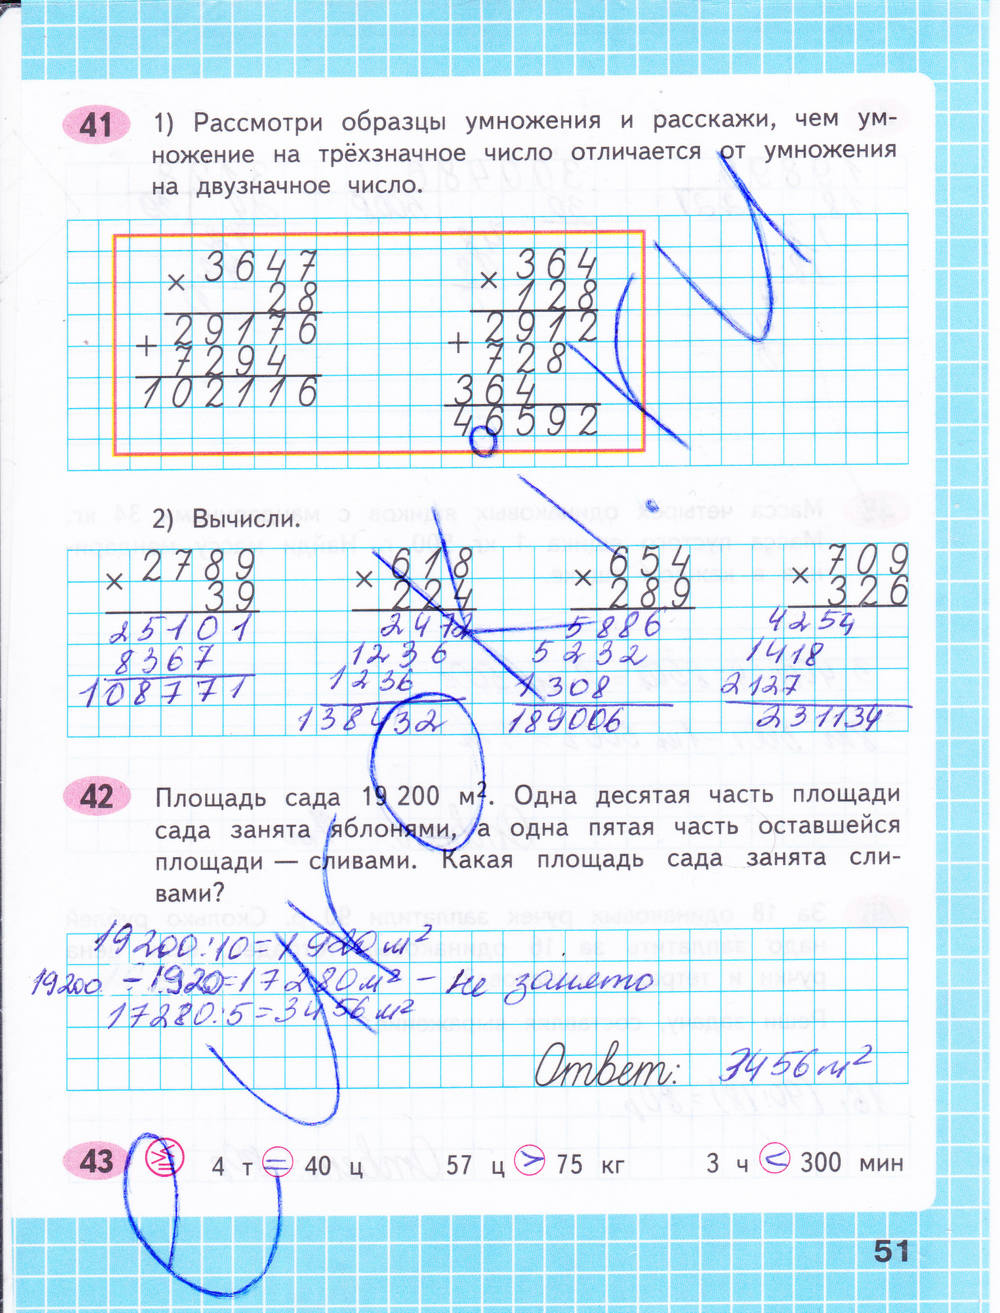 41
1) Рассмотри образцы умножения и расскажи, чем ум-
ножение на трёхзначное число отличается от умножения
на двузначное число.
× 3647
28
+ 29176
7294
102116
× 364
128
+ 2912
728
364
46592
2) Вычисли.
× 2789
39
25101
8367
108771
× 618
224
2472
1236
1236
138432
× 654
289
5886
5232
1308
189006
× 709
326
4254
1418
2127
231134
42
Площадь сада 19 200 м². Одна десятая часть площади
сада занята яблонями, а одна пятая часть оставшейся
площади — сливами. Какая площадь сада занята сли-
вами?
19200:10=1920 м²
19200 - 1920=17280 м² - не занято
17280:5=3456 м²
Ответ: 3456 м²
43
4 т = 40 ц 57 ц > 75 кг 3 ч < 300 мин
51